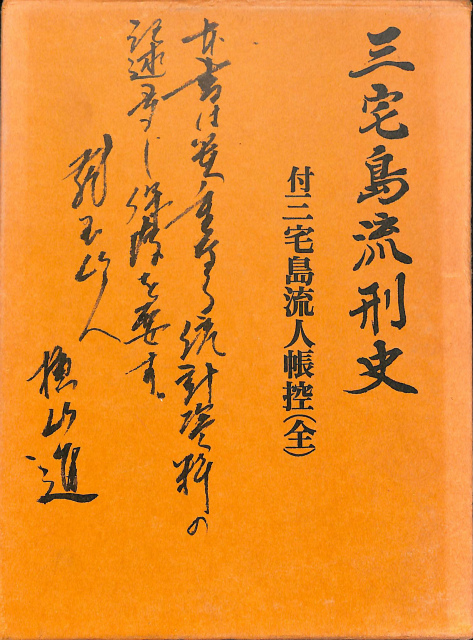 三宅島流刑史
付三宅島流人帳控(全)
本書は貴重なる統計資料の
記述多し保存を要す
山人
横山進